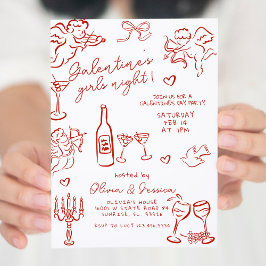 Galentine's
girls night!
JOIN US FOR A
GALENTINE'S DAY PARTY!
SATURDAY
FEB 14
AT 7PM
hosted by
Olivia & Jessica
OLIVIA'S HOUSE
14005 W STATE ROAD 84
SUNRISE, FL 33325
RSVP TO LUCY